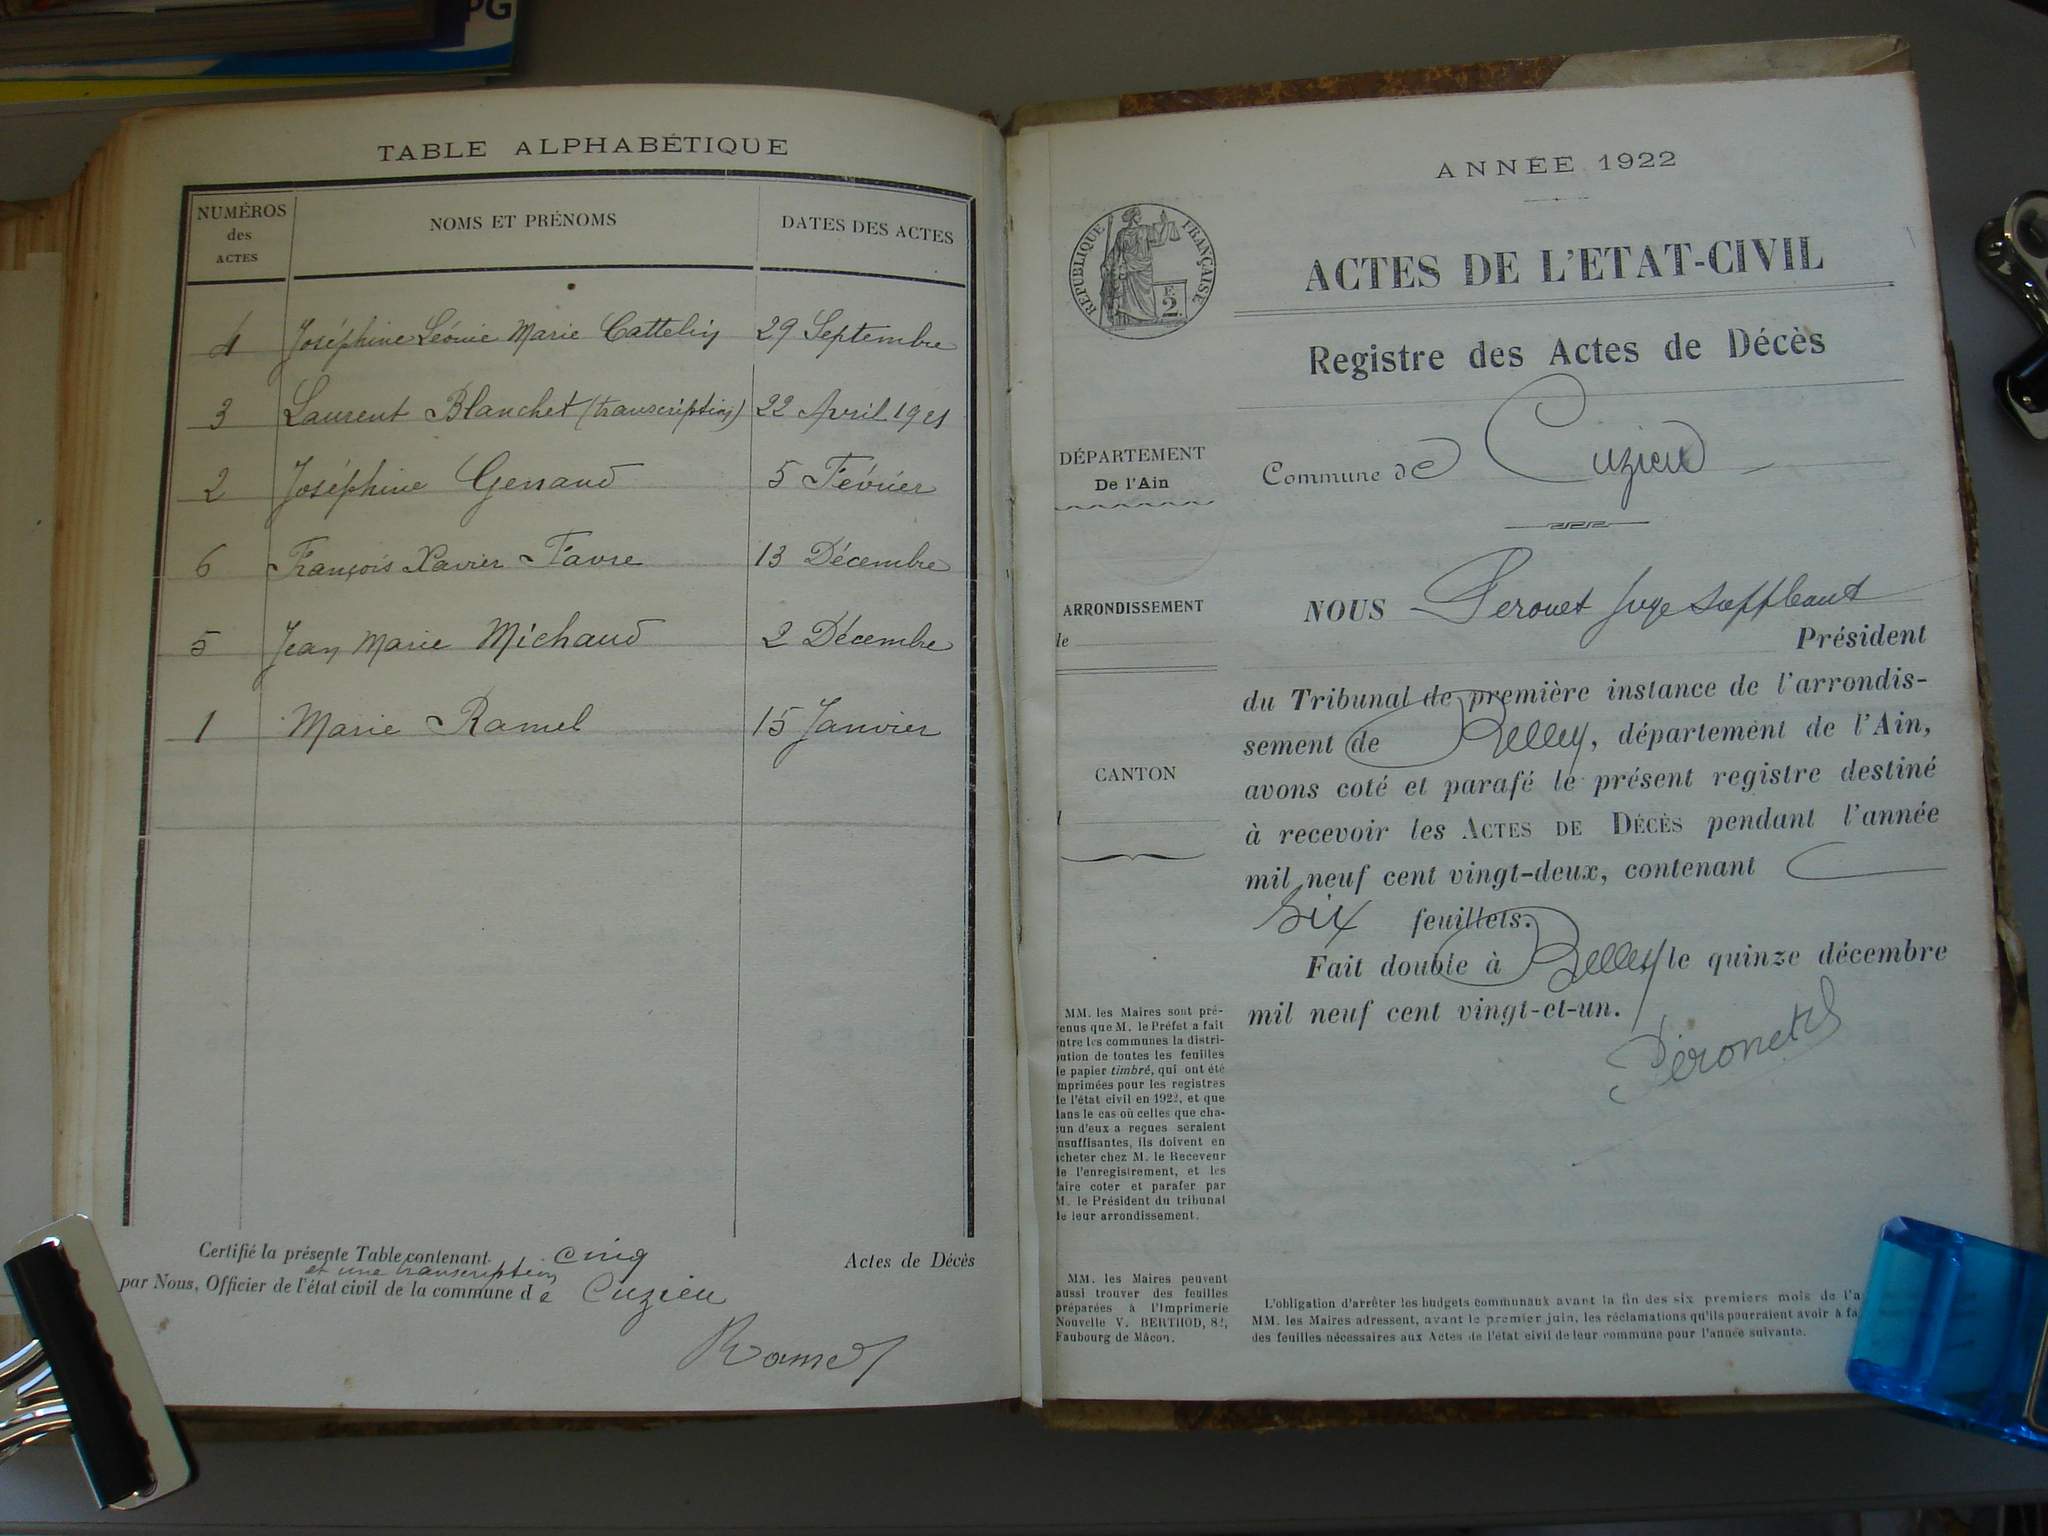 PG
TABLE ALPHABÉTIQUE
NUMÉROS des ACTES
NOMS ET PRÉNOMS
DATES DES ACTES
4 Joséphine Léonie Marie Cattelin 29 Septembre
3 Laurent Blanchet (transcription) 22 Avril 1921
2 Joséphine 5 Février
6 François Xavier Favre 13 Décembre
5 Jean Marie Michaud 2 Décembre
1 Marie Ramel 15 Janvier
Certifié la présente Table contenant cinq Actes de Décès
et une transcription
par Nous, Officier de l'état civil de la commune de Cuzieu
Ramel
ANNÉE 1922
RÉPUBLIQUE FRANÇAISE
F. 2.
ACTES DE L'ETAT-CIVIL
Registre des Actes de Décès
DÉPARTEMENT
De l'Ain
Commune de Cuzieu
ARRONDISSEMENT
le
CANTON
NOUS Peronet Juge suppléant
Président
du Tribunal de première instance de l'arrondis-
sement de Belley, département de l'Ain,
avons coté et parafé le présent registre destiné
à recevoir les ACTES DE DÉCÈS pendant l'année
mil neuf cent vingt-deux, contenant
six feuillets.
Fait double à Belley le quinze décembre
mil neuf cent vingt-et-un.
Péronet
MM. les Maires sont pré-
enus que M. le Préfet a fait
ntre les communes la distri-
ution de toutes les feuilles
e papier timbré, qui ont été
mprimées pour les registres
e l'état civil en 1922, et que
ans le cas où celles que cha-
un d'eux a reçues seraient
nsuffisantes, ils doivent en
cheter chez M. le Receveur
e l'enregistrement, et les
aire coter et parafer par
M. le Président du tribunal
e leur arrondissement.
MM. les Maires peuvent
aussi trouver des feuilles
préparées à l'Imprimerie
Nouvelle V. BERTHOD, 82,
Faubourg de Mâcon.
L'obligation d'arrêter les budgets communaux avant la fin des six premiers mois de l'a
MM. les Maires adressent, avant le premier juin, les réclamations qu'ils pourraient avoir à fa
des feuilles nécessaires aux Actes de l'état civil de leur commune pour l'année suivante.